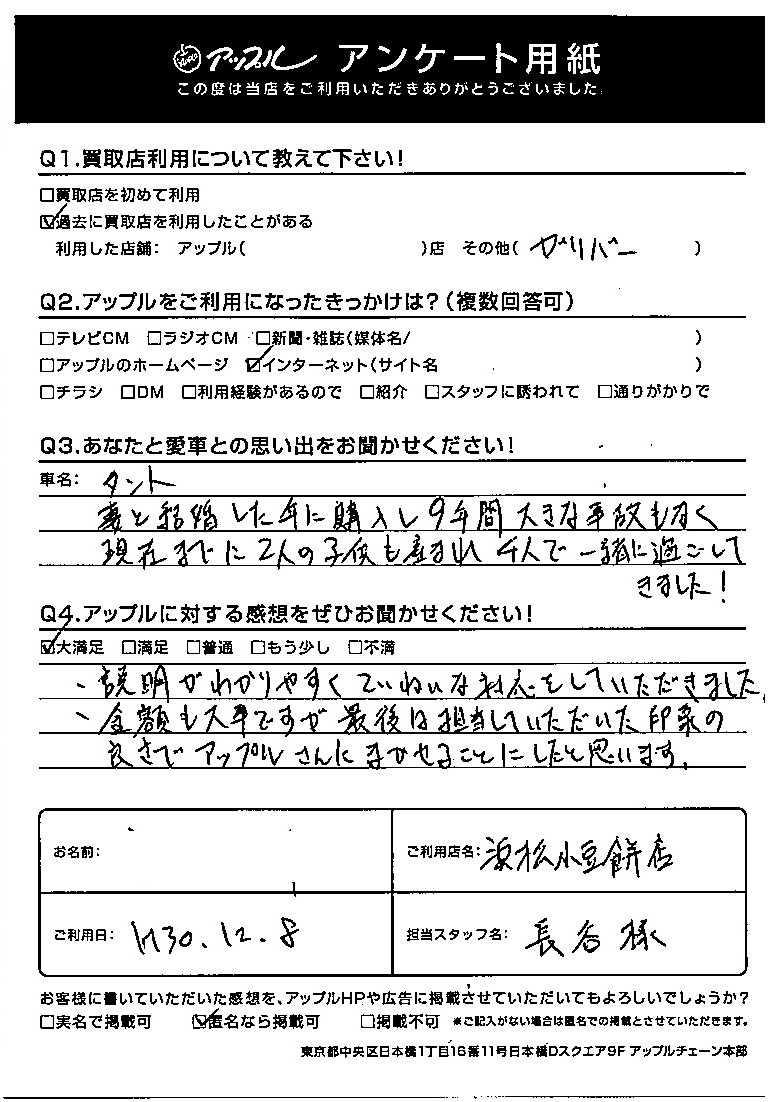 アップル アンケート用紙
この度は当店をご利用いただきありがとうございました。
Q1.買取店利用について教えて下さい!
□買取店を初めて利用
☑過去に買取店を利用したことがある
利用した店舗: アップル( )店 その他( ガリバー )
Q2.アップルをご利用になったきっかけは?(複数回答可)
□テレビCM □ラジオCM □新聞・雑誌(媒体名/ )
□アップルのホームページ ☑インターネット(サイト名 )
□チラシ □DM □利用経験があるので □紹介 □スタッフに誘われて □通りがかりで
Q3.あなたと愛車との思い出をお聞かせください!
車名: タント
妻と結婚した年に購入し9年間大きな事故もなく
現在までに2人の子供も産まれ4人で一緒に過ごして
きました!
Q4.アップルに対する感想をぜひお聞かせください!
☑大満足 □満足 □普通 □もう少し □不満
、説明がわかりやすくていねいな対応をしていただきました。
、金額も大事ですが最後は担当していただいた印象の
良さでアップルさんにまかせることにしたと思います。
お名前: ご利用店名: 浜松小豆餅店
ご利用日: H30.12.8 担当スタッフ名: 長谷様
お客様に書いていただいた感想を、アップルHPや広告に掲載させていただいてもよろしいでしょうか?
□実名で掲載可 ☑匿名なら掲載可 □掲載不可 ※ご記入がない場合は匿名での掲載とさせていただきます。
東京都中央区日本橋1丁目16番11号日本橋Dスクエア9F アップルチェーン本部